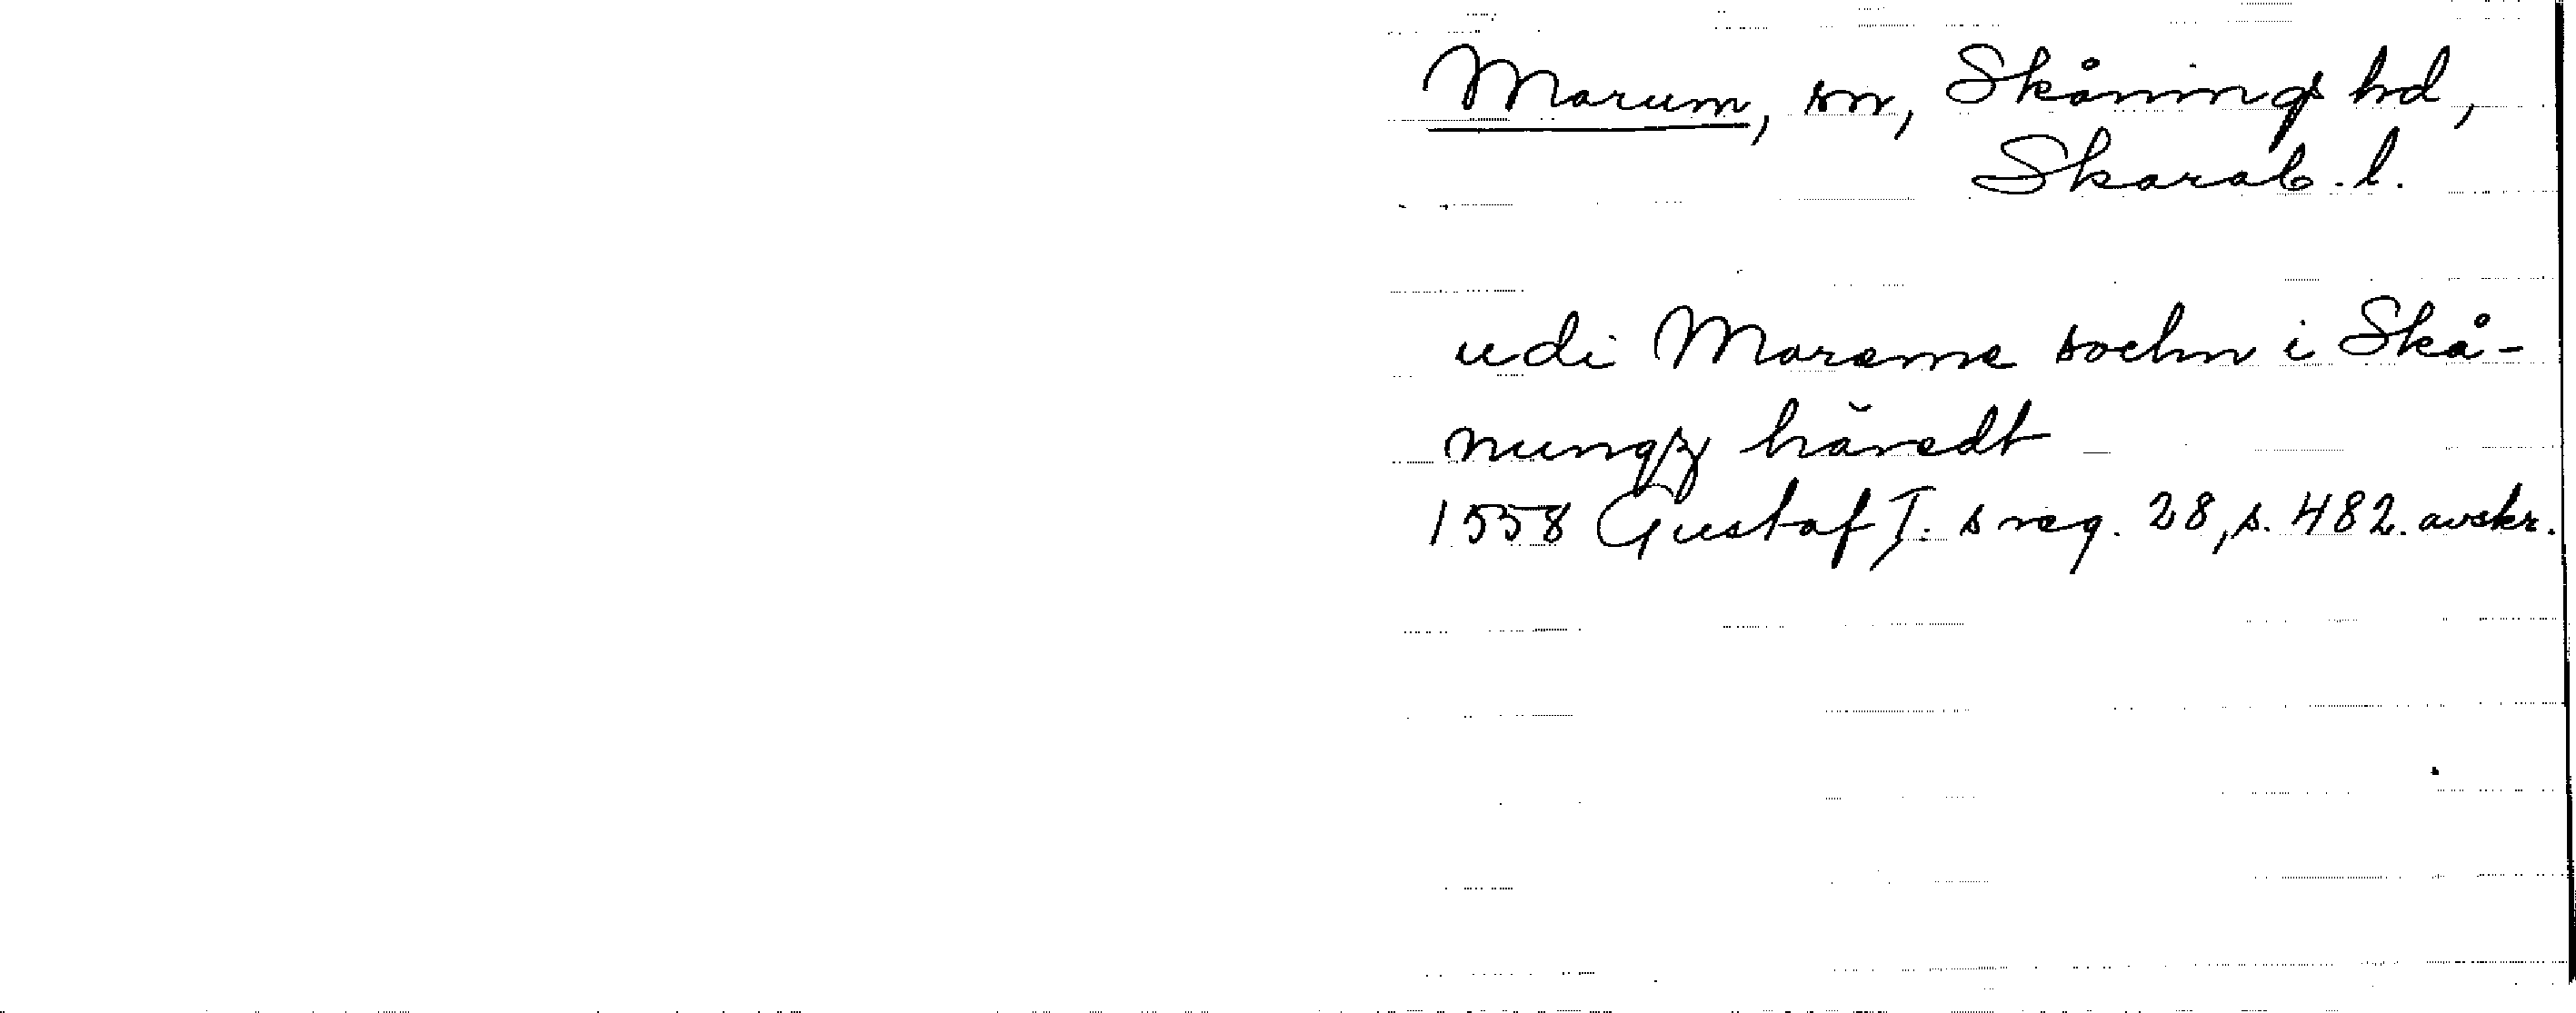 Marum, sn, Skånings hd,
Skarab. l.
udi Marems sochn i Skå-
nungz häredt
1558 Gustaf I:s reg. 28, s. 482. avskr.